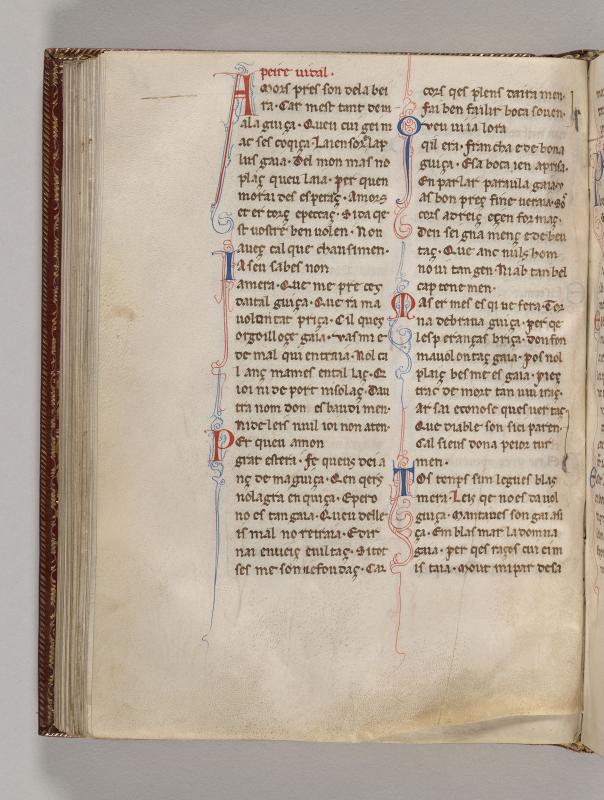 peire uidal.
Amors pres son dela bei
ra. Car mest tant dem
ala guiça. Queu cui gei m
ac ses coqiça. Laien sor lap
lus gaia. Del mon mas no
plaç queu laia. per quen
morai des esperç. Amors
et er torç epeccaç. Si da qe
st uostre ben uolen. Non
aueç cal que chausimen.
Ia seu sabes non
amera. Que me pre cex
dautal guiça. Que ra ma
uoluntat priça. Cil queç
orgoilloçe gaia. vas mi e
de mal qui entraia. Nol ca
l anç mames ental laç. Q
ioi ni de port nisolaç. Dau
tra nom don esbaudimen.
Ni de leis nuul ioi non aten.
Per queu amon
grat estera. Se queus dei a
nç de ma guiça. Q en qers
nolagra en quiça. Epero
no es tan gaia. Queu delle
is mal no retraia. E dir
nai enueis euiltaç. Si tot
ses me son nefondaç. Car
cors qes plens daira men.
fai ben faillir boca souen.
Queu ui ia lora
qil era. francha e de bona
guiça. E sa boca ien aprisa.
En parlar paraula gaia.
as bon preç fine ueraia. So
cors adreiç eçen formaç.
den seigna menç e de beu
taç. Que anc nuls hom
no ui tan gen. Ni ab tan bel
cap tenemen.
Mas er mes es qi ue fera. Tor
na de braua guiça. per qe
lesperanças briça. don fon
mauolontaç gaia. pos nol
plaiç bes me es gaia. pieç
trac de mort tan uiu iraç.
Ar sai econose ques uertaç
Que diable son sici paren.
Cal sieus dona peior tur
men.
Tos temps fun legues blas
mera. Leis qe no es dauol
guiça. Mantaues son gai asi
ça. Em blasmar la domna
gaia. per qes raços cui eim
is traia. Mout mi par desa